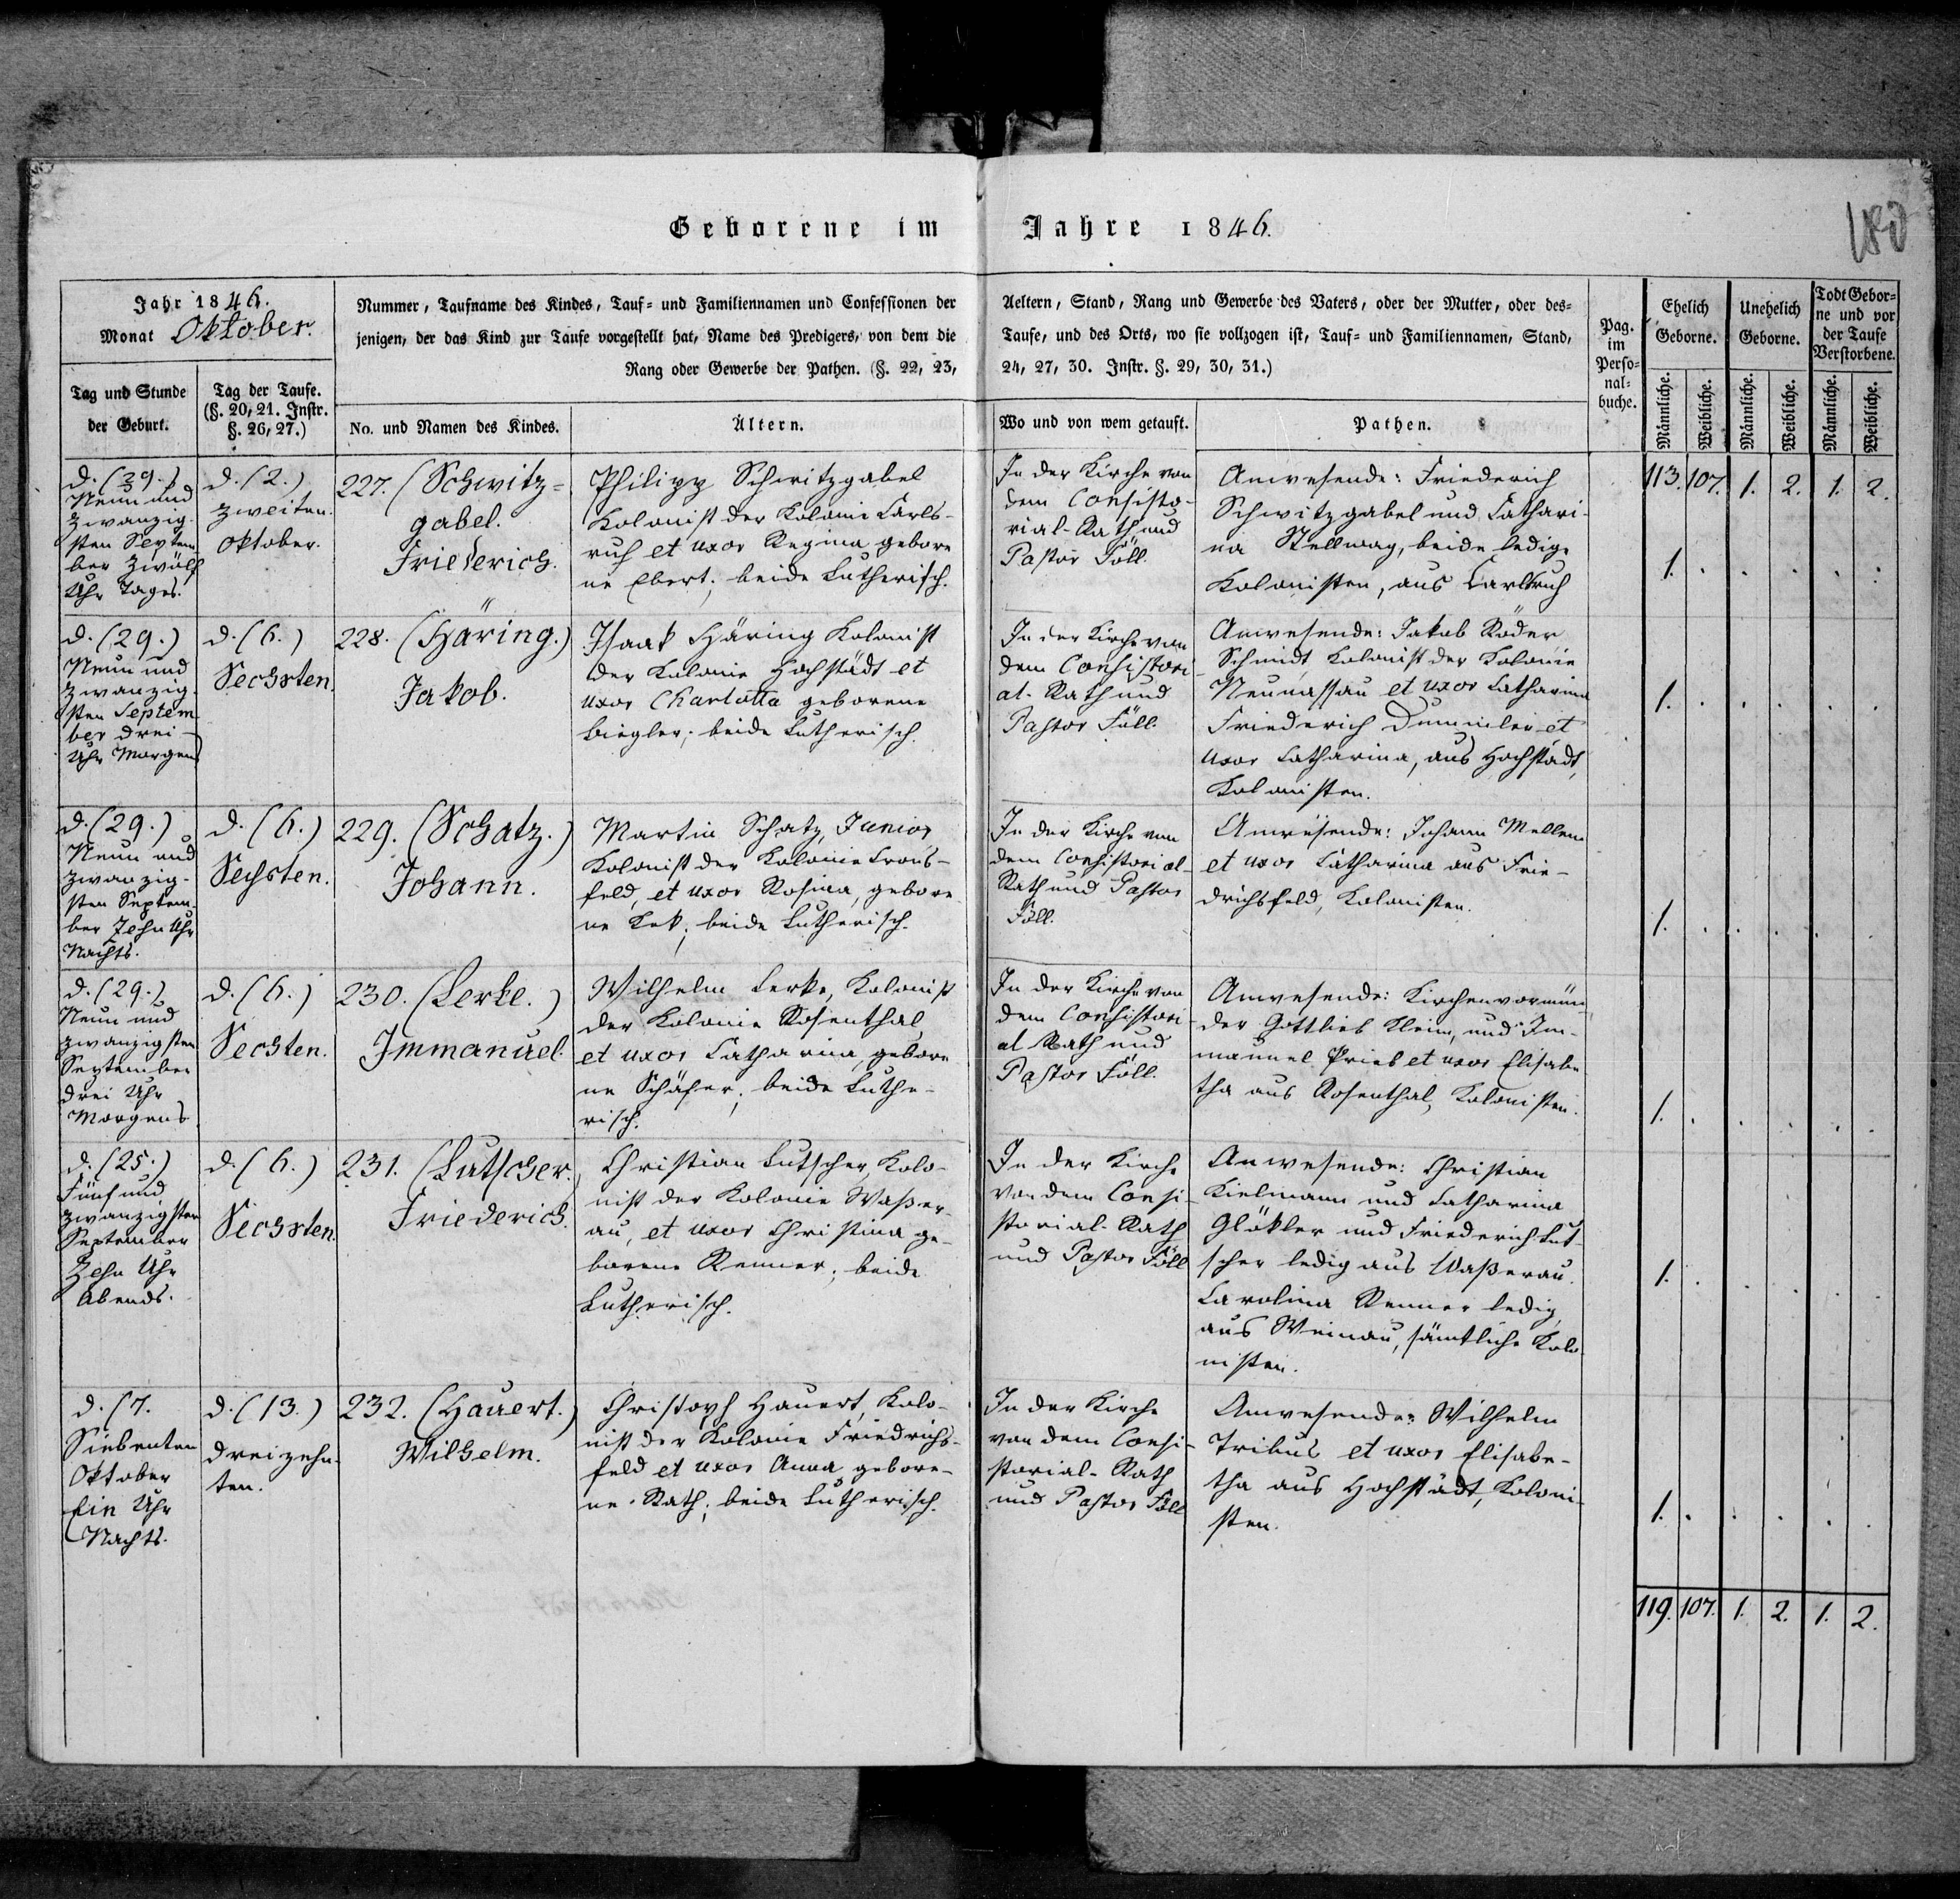 Geborene im Jahre 1846.
180
Jahr 1846.
Monat Oktober.
Nummer, Taufname des Kindes, Tauf- und Familiennamen und Confessionen der Aeltern, Stand, Rang und Gewerbe des Vaters, oder der Mutter, oder des-
jenigen, der das Kind zur Taufe vorgestellt hat, Name des Predigers, von dem die Taufe, und des Orts, wo sie vollzogen ist, Tauf- und Familiennamen, Stand,
Rang oder Gewerbe der Pathen. (§. 22, 23, 24, 27, 30. Instr. §. 29, 30, 31.)
Tag und Stunde
der Geburt.
Tag der Taufe.
(§. 20, 21. Instr.
§. 26, 27.)
No. und Namen des Kindes.
Ältern.
Wo und von wem getauft.
Pathen.
Pag.
im
Perso-
nal-
buche.
Ehelich
Geborne.
Unehelich
Geborne.
Todt Gebor-
ne und vor
der Taufe
Verstorbene.
Männliche.
Weibliche.
Männliche.
Weibliche.
Männliche.
Weibliche.
113. 107. 1. 2. 1. 2.
d. (29.)
Neun und
zwanzig-
sten Septem-
ber Zwölf
Uhr Tages.
d. (2.)
Zweiten
Oktober.
227. (Schwitz-
gabel.
Friederich.
Philipp Schwitzgabel
Kolonist der Kolonie Carls-
ruh et uxor Regina gebore
ne Ebert; beide Lutherisch.
In der Kirche von
dem Consisto-
rial-Rath und
Pastor Föll.
Anwesende: Friederich
Schwitzgabel und Cathari-
na Stellwag, beide ledige
Kolonisten, aus Carlsruh
1. . . . . .
d. (29.)
Neun und
zwanzig-
sten Septem
ber drei-
Uhr Morgens
d. (6.)
Sechsten.
228. (Häring.)
Jakob.
Isaak Häring Kolonist
der Kolonie Hochstädt et
uxor Charlotta geborene
Ziegler; beide Lutherisch.
In der Kirche von
dem Consistori-
al-Rath und
Pastor Föll.
Anwesende: Jakob Röder
Schmidt, Kolonist der Kolonie
Neunassau et uxor Catharina
Friederich Dummler et
uxor Catharina, aus Hochstädt,
Kolonisten.
1. . . . . .
d. (29.)
Neun und
zwanzig-
sten Septem-
ber Zehn Uhr
Nachts.
d. (6.)
Sechsten.
229. (Schatz.)
Johann.
Martin Schatz, Junior,
Kolonist der Kolonie Crons-
feld, et uxor Rosina, gebore
ne Kek; beide Lutherisch.
In der Kirche von
dem Consistorial-
Rath und Pastor
Föll.
Anwesende: Johann Mellem
et uxor Catharina aus Frie-
drichsfeld, Kolonisten.
1. . . . . .
d. (29.)
Neun und
zwanzigsten
September
drei Uhr
Morgens
d. (6.)
Sechsten.
230. (Lerke.)
Immanuel.
Wilhelm Lerke, Kolonist
der Kolonie Rosenthal,
et uxor Catharina, gebore
ne Schäfer; beide Luthe-
risch.
In der Kirche von
dem Consistori-
al Rath und
Pastor Föll.
Anwesende: Kirchenvormün-
der Gottlieb Klein, und Im-
manuel Prieb et uxor Elisabe
tha aus Rosenthal, Kolonisten.
1. . . . . .
d. (25.)
Fünf und
zwanzigsten
September
Zehn Uhr
Abends.
d. (6.)
Sechsten.
231. (Lutscher.)
Friederich.
Christian Lutscher, Kolo-
nist der Kolonie Waßer-
au, et uxor Christina ge-
borene Renner; beide
Lutherisch.
In der Kirche
von dem Consi-
storial-Rath
und Pastor Föll
Anwesende: Christian
Kielmann und Catharina
Glökler und Friederich Lut-
scher ledig aus Waßerau.
Carolina Renner ledig
aus Weinau, sämtliche Kolo-
nisten.
1. . . . . .
d. (7.
Siebenten
Oktober
Ein Uhr
Nachts.
d. (13.)
dreizehn-
ten.
232. (Hauert.)
Wilhelm.
Christoph Hauert, Kolo-
nist der Kolonie Friedrichs-
feld et uxor Anna gebore-
ne Rath; beide Lutherisch.
In der Kirche
von dem Consi-
storial-Rath
und Pastor Föll
Anwesende: Wilhelm
Tribus et uxor Elisabe-
tha aus Hochstädt, Koloni-
sten.
1. . . . . .
119. 107. 1. 2. 1. 2.